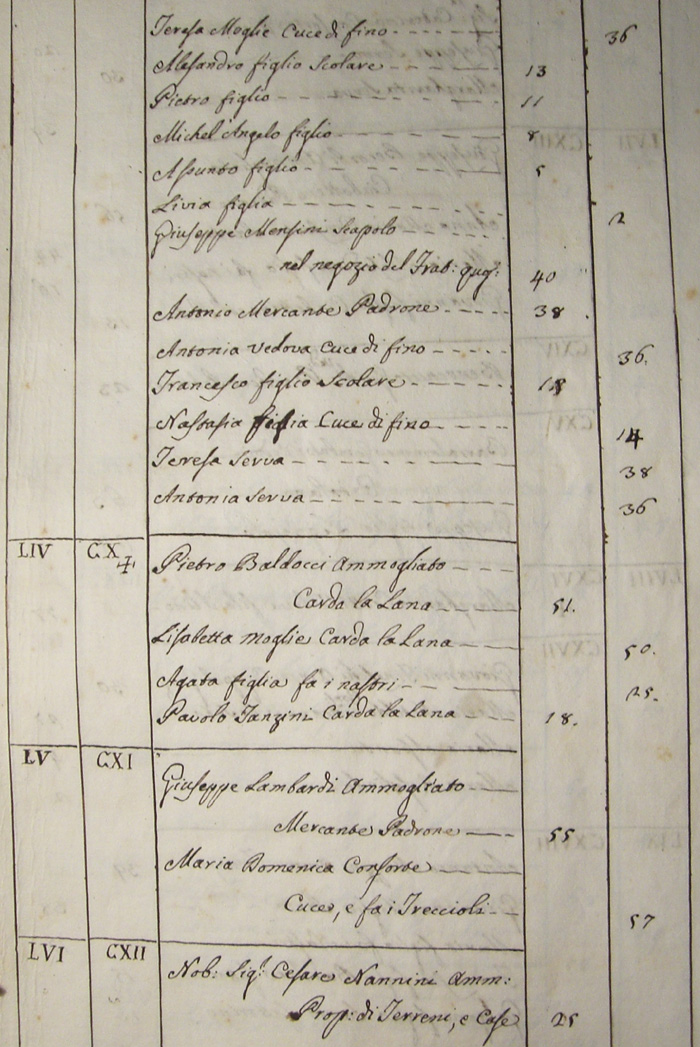 Teresa Moglie Cuce di fino 36
Alesandro figlio Scolare 13
Pietro figlio 11
Michel'Angelo figlio 8
Assunto figlio 5
Livia figlia 2
Giuseppe Mensini Scapolo
nel negozio del Trab: 40
Antonio Mercante Padrone 38
Antonia Vedova Cuce di fino 36.
Francesco figlio Scolare
Nastasia figlia Cuce di fino 14
Teresa Serva 38
Antonia Serva 36
LIV CX Pietro Baldocci Ammogliato
Carda la Lana 51.
Lisabetta moglie Carda la Lana 50.
Agata figlia fa i nastri 25.
Pavolo Tanzini Carda la Lana 18.
LV CXI Giuseppe Lambardi Ammogliato
Mercante Padrone 55
Maria Domenica Consorte
Cuce, e fa i Treccioli 57
LVI CXII Nob: Sig.r Cesare Nannini Amm:
Prop: di Terreni, e Case 25